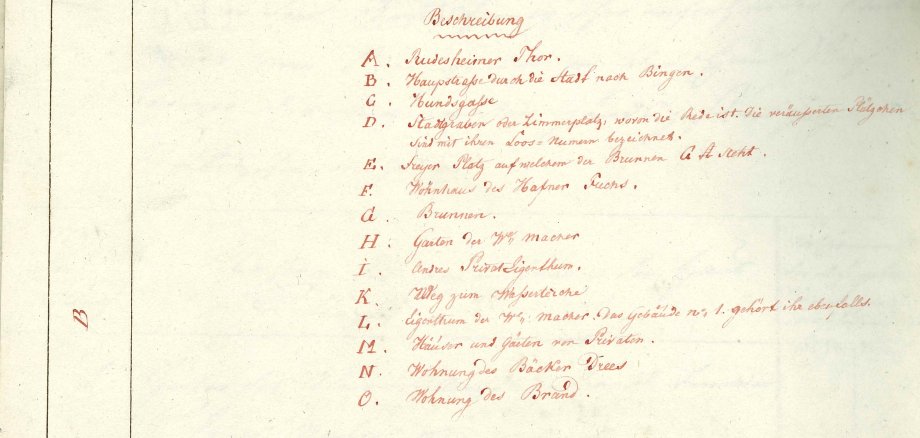 Beschreibung
A. Rudesheimer Thor.
B. Haupstrasse durch die Stadt nach Bingen.
C. Hundsgasse
D. Stadtgraben oder Zimmerplatz, wovon die Rede ist. Die veräusserten Plätzchen
sind mit ihren Loos=Numern bezeichnet.
E. Freyer Platz auf welchem der Brunnen G steht.
F. Wohnhaus des Hafner Fuchs.
G. Brunnen.
H. Garten der Ww. Macher
I. Andres Privat Eigenthum.
K. Weg zum Wasserteiche
L. Eigenthum der Ww. Macher. Das Gebäude no. 1. gehört ihr ebenfalls.
M. Häuser und Gärten von Privaten.
N. Wohnung des Bäcker Drees
O. Wohnung des Brand.
B